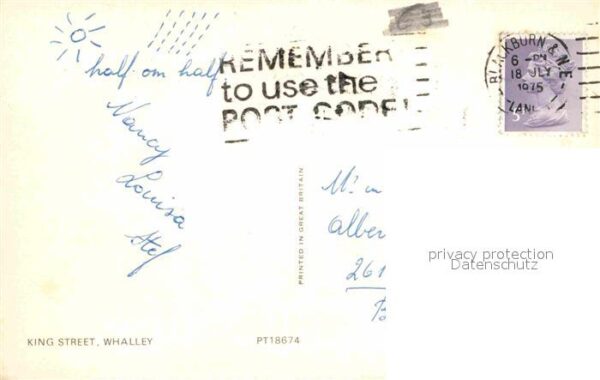 half om half
Nancy
Louisa
Stef
REMEMBER
to use the
POST CODE!
BLACKBURN & N.E.
6 - PM
18 JLY
1975
LANCS
PRINTED IN GREAT BRITAIN
Mr
Alber
261
B
privacy protection
Datenschutz
KING STREET, WHALLEY
PT18674